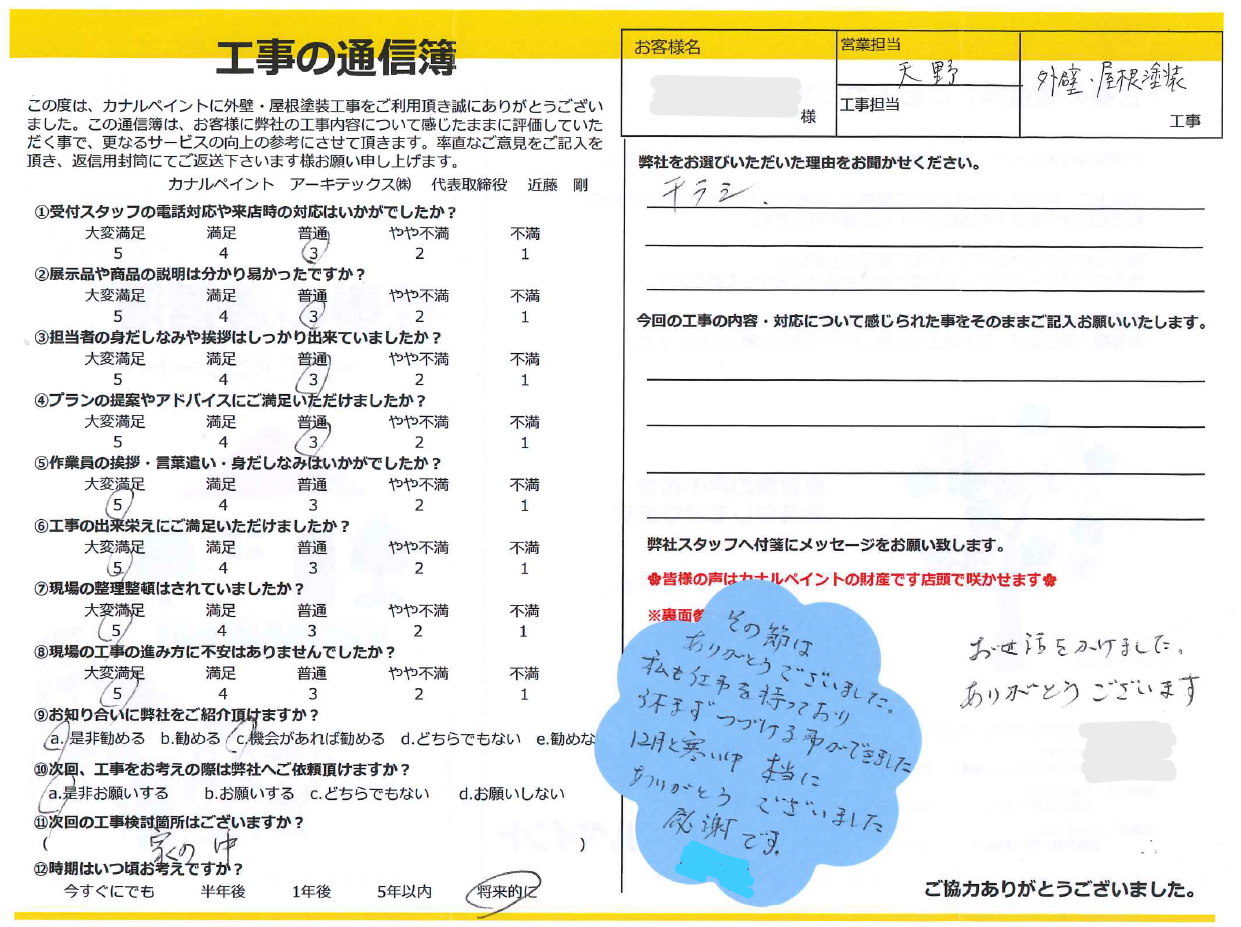 工事の通信簿
この度は、カナルペイントに外壁・屋根塗装工事をご利用頂き誠にありがとうござい
ました。この通信簿は、お客様に弊社の工事内容について感じたままに評価していた
だく事で、更なるサービスの向上の参考にさせて頂きます。率直なご意見をご記入を
頂き、返信用封筒にてご返送下さいます様お願い申し上げます。
カナルペイント アーキテックス㈱ 代表取締役 近藤 剛
①受付スタッフの電話対応や来店時の対応はいかがでしたか？
大変満足 満足 普通 やや不満 不満
5 4 3 2 1
②展示品や商品の説明は分かり易かったですか？
大変満足 満足 普通 やや不満 不満
5 4 3 2 1
③担当者の身だしなみや挨拶はしっかり出来ていましたか？
大変満足 満足 普通 やや不満 不満
5 4 3 2 1
④プランの提案やアドバイスにご満足いただけましたか？
大変満足 満足 普通 やや不満 不満
5 4 3 2 1
⑤作業員の挨拶・言葉遣い・身だしなみはいかがでしたか？
大変満足 満足 普通 やや不満 不満
5 4 3 2 1
⑥工事の出来栄えにご満足いただけましたか？
大変満足 満足 普通 やや不満 不満
5 4 3 2 1
⑦現場の整理整頓はされていましたか？
大変満足 満足 普通 やや不満 不満
5 4 3 2 1
⑧現場の工事の進み方に不安はありませんでしたか？
大変満足 満足 普通 やや不満 不満
5 4 3 2 1
⑨お知り合いに弊社をご紹介頂けますか？
a.是非勧める b.勧める c.機会があれば勧める d.どちらでもない e.勧めな
⑩次回、工事をお考えの際は弊社へご依頼頂けますか？
a.是非お願いする b.お願いする c.どちらでもない d.お願いしない
⑪次回の工事検討箇所はございますか？
( 家の中 )
⑫時期はいつ頃お考えですか？
今すぐにでも 半年後 1年後 5年以内 将来的に
お客様名
様
営業担当
天野
工事担当
外壁・屋根塗装
工事
弊社をお選びいただいた理由をお聞かせください。
チラシ.
今回の工事の内容・対応について感じられた事をそのままご記入お願いいたします。
弊社スタッフへ付箋にメッセージをお願い致します。
✿皆様の声はカナルペイントの財産です店頭で咲かせます✿
※裏面参
その節は
ありがとうございました。
私も仕事を持っており
休まずつづける事ができました
12月と寒い中 本当に
ありがとう ございました
感謝です.
お世話をかけました。
ありがとうございます
ご協力ありがとうございました。